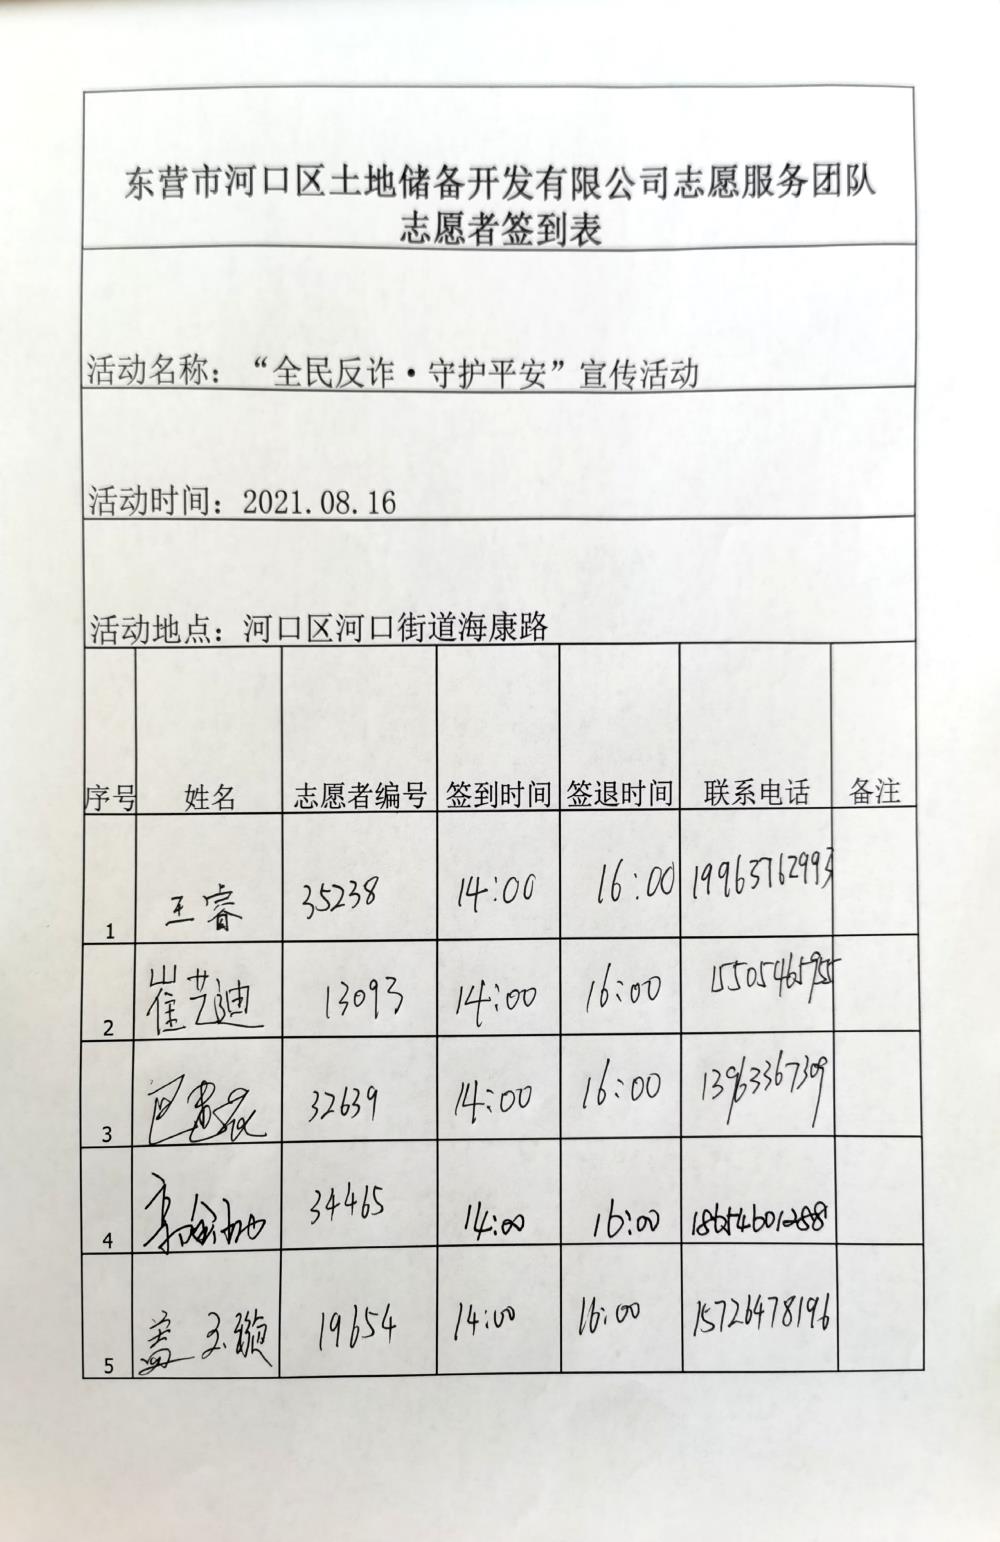 东营市河口区土地储备开发有限公司志愿服务团队
志愿者签到表
活动名称：“全民反诈·守护平安”宣传活动
活动时间：2021.08.16
活动地点：河口区河口街道海康路
序号 姓名 志愿者编号 签到时间 签退时间 联系电话 备注
1 王睿 35238 14:00 16:00 19963762993
2 崔艺迪 13093 14:00 16:00 15505465955
3 32639 14:00 16:00 13963367309
4 34465 14:00 16:00 18654601288
5 盖玉璇 19654 14:00 16:00 15726478196